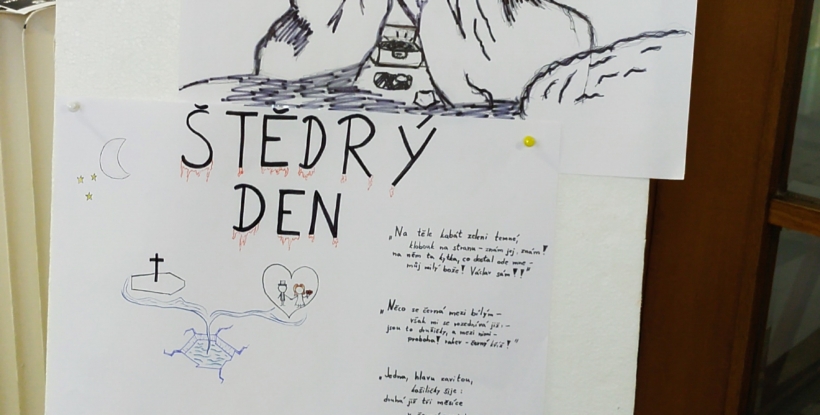 ŠTĚDRÝ
DEN
„Na těle kabát zeleni temné,
klobouk na stranu – znám jej, znám!
na něm ta kytka, co dostal ode mne –
můj milý bože! Václav sám!!"
„Něco se černá mezi bílým –
však mi se nezjednívá již: –
jsou to družičky, a mezi nimi –
probůh! rakev – černý kříž!"
„Jedna, hlavu
košiličky šije:
druhá již tři měsíce